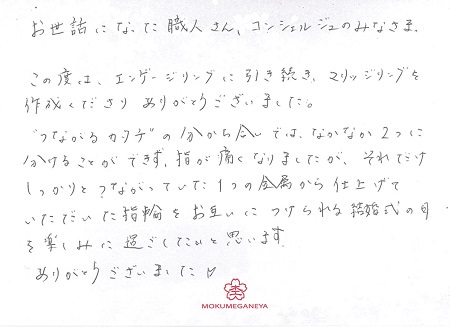 お世話になった職人さん、コンシェルジュのみなさま
この度は、エンゲージリングに引き続き、マリッジリングを
作成くださりありがとうございました。
"つながるカタチ"の分かち合いでは、なかなか2つに
分けることができず、指が痛くなりましたが、それだけ
しっかりとつながっていた1つの金属から仕上げて
いただいた指輪をお互いにつけられる結婚式の日
を楽しみに過ごしたいと思います。
ありがとうございました♡
MOKUMEGANEYA